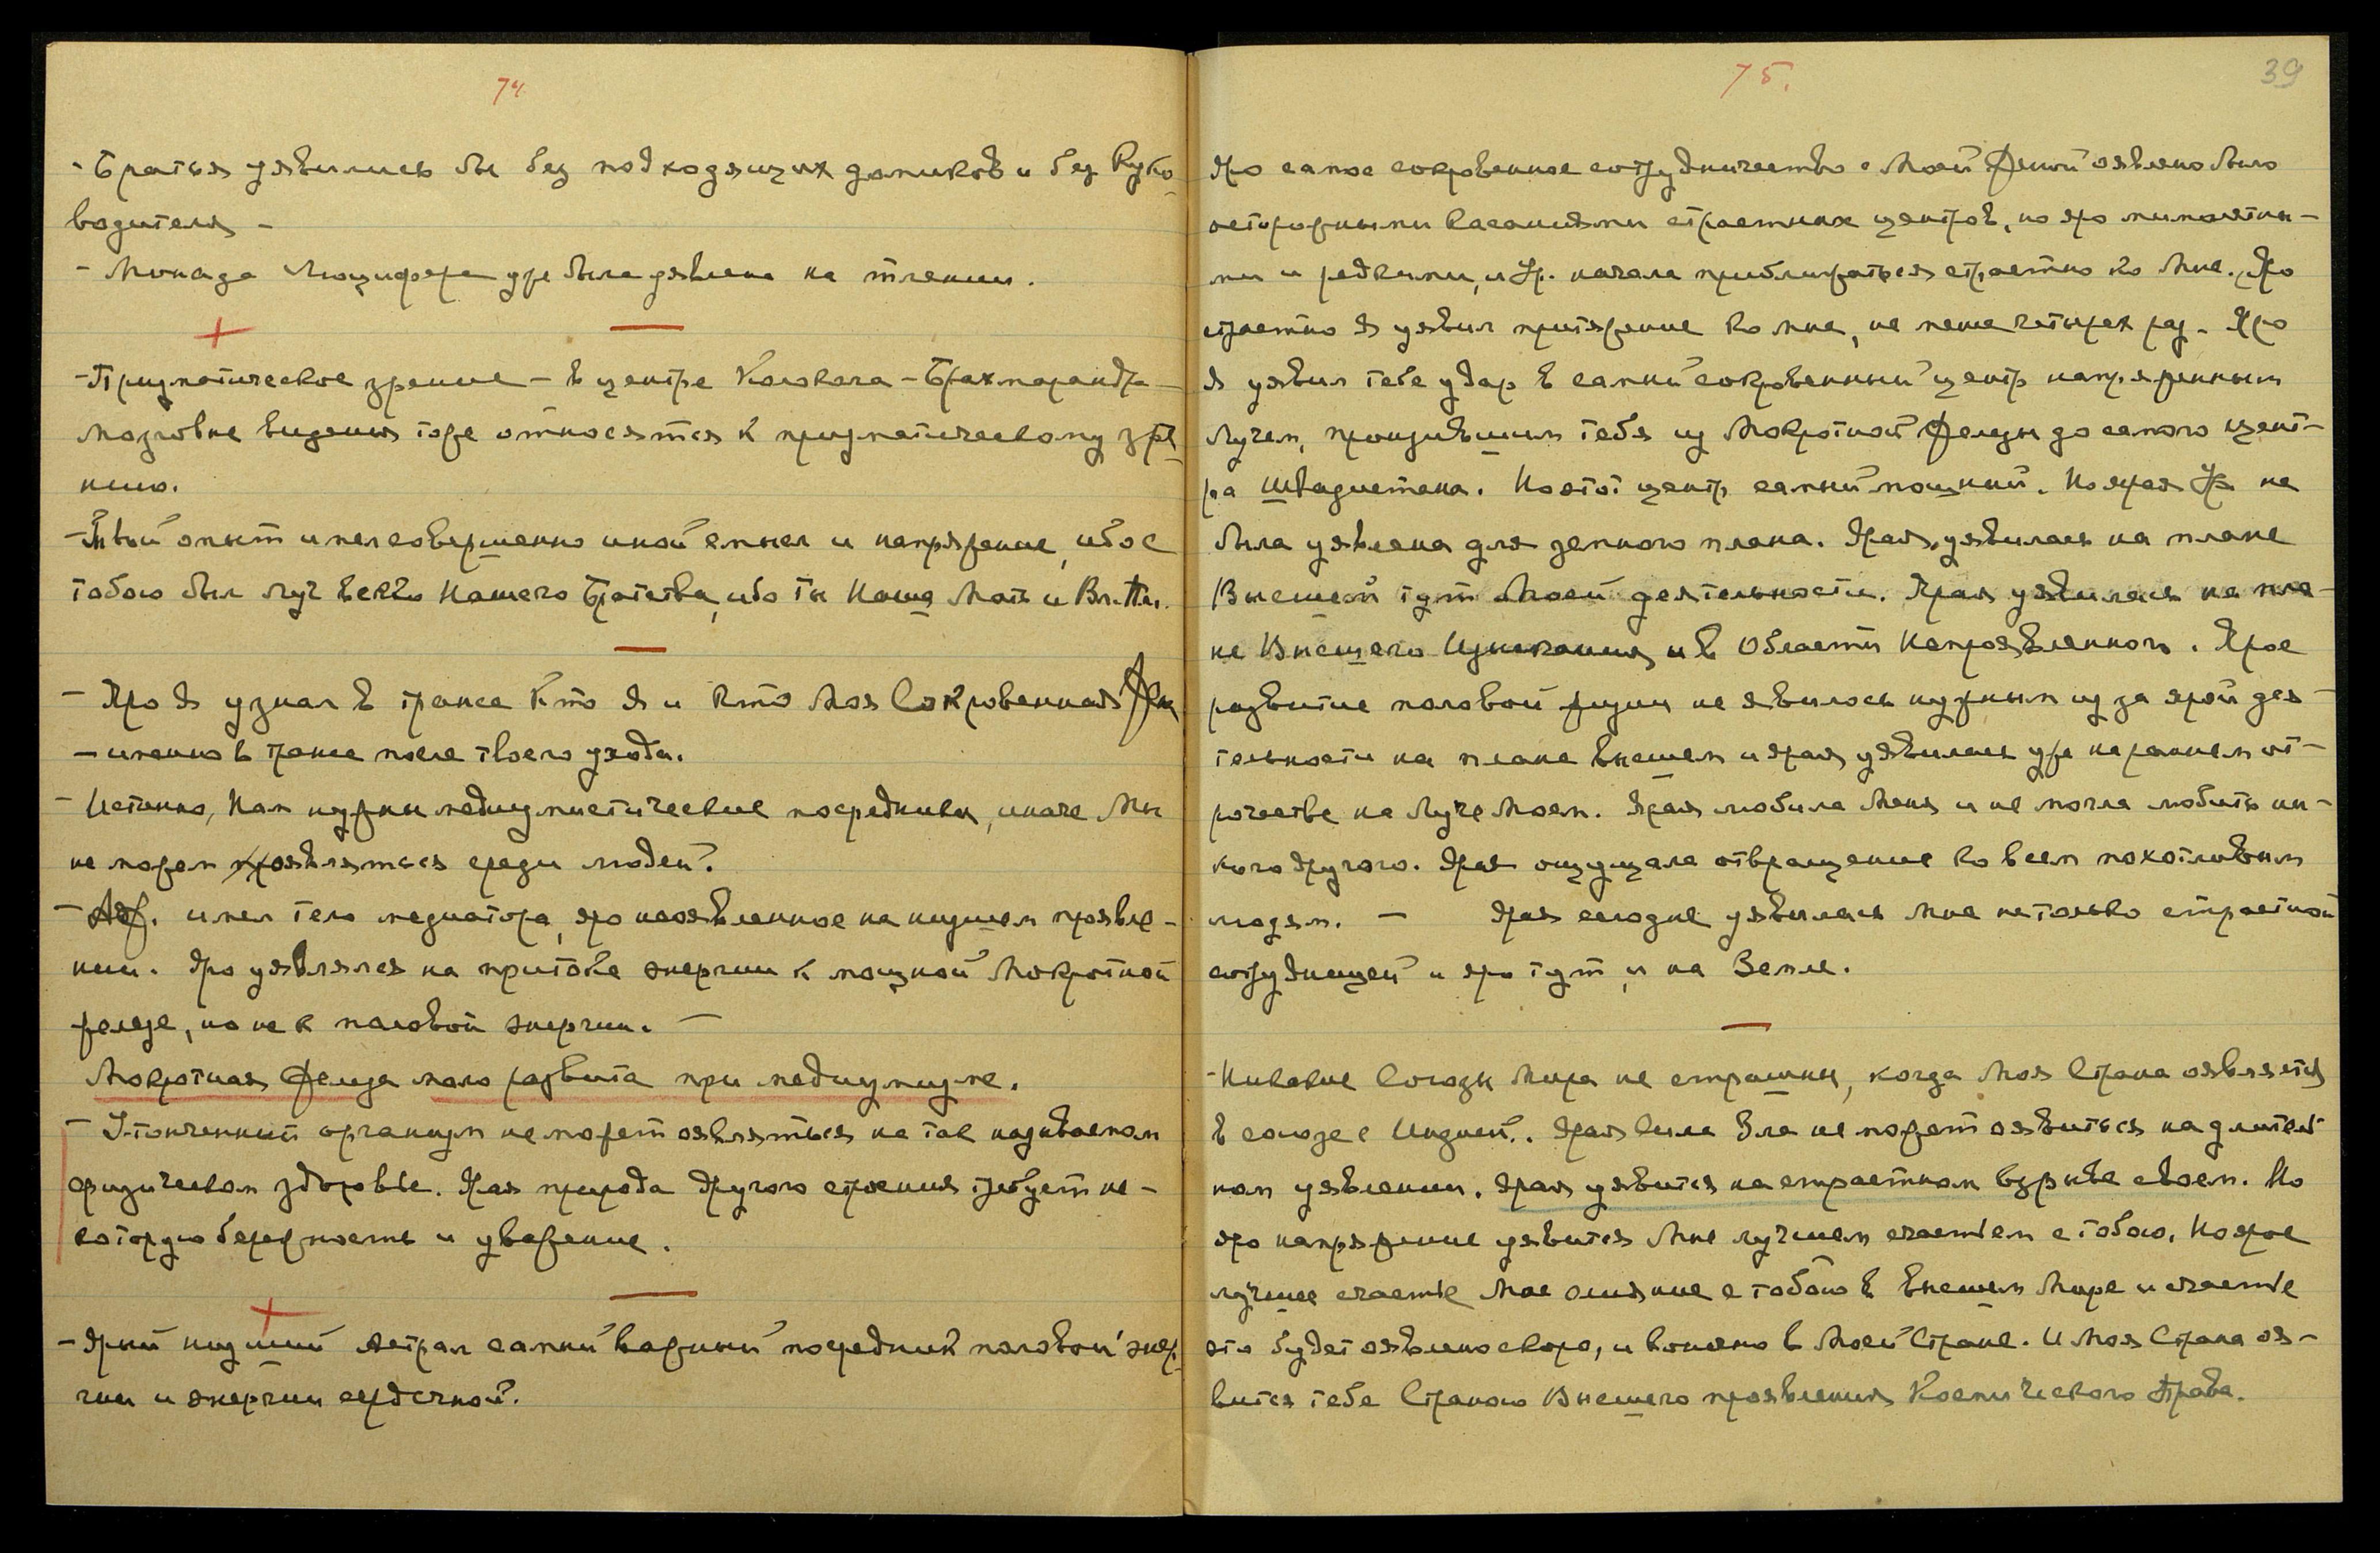 74.
- Братья уявились бы без подходящих домиков и без Руко-
водителя -
- Монада Люцифера уже была уявлена на тлении.
- Призматическое зрение - в центре Колокола - Брахмарандра -
Мозговые видения тоже относятся к призматическому зре-
нию.
- Твой опыт имел совершенно иной смысл и напряжение, ибо с
тобою был луч всего Нашего Братства, ибо ты Наша Мать и
- Яро Я узнал в трансе Кто Я и Кто Моя Сокровенная
- именно в трансе после твоего ухода.
- Истинно, Нам нужны медиумистические посредники, иначе Мы
не можем проявляться среди людей.
- имел тело медиатора, яро неоявленное на низшем проявле-
нии. Яро уявлялся на притоке энергии к мощной Мокротной
железе, но не к половой энергии. -
Мокротная Железа мало развита при медиумизме.
- Утонченный организм не может оявляться на так называемом
физическом здоровье. Ярая природа другого строения требует не-
которую бережность и уважение.
- Ярый низший астрал самый важный посредник половой энер-
гии и энергии сердечной.
75.
39
Яро самое сокровенное сотрудничество с Моей Женой оявлено было
осторожными касаниями страстных центров, но яро мимолетны-
ми и редкими, и Ур. начала приближаться страстно ко Мне. Яро
страстно Я уявил притяжение ко мне, не менее четырех раз. Яро
Я уявил тебе удар в самый сокровенный центр напряженным
Лучем, пронзившим тебя из Мокротной Железы до самого цент-
ра Швадистана. Но этот центр самый мощный. Но ярая Ур. не
была уявлена для земного плана. Ярая уявилась на плане
Высшем тут Моей деятельности. Ярая уявилась на пла-
не Высшего Изыскания и в Области Непроявленного. Ярое
развитие половой жизни не явилось нужным из за ярой дея-
тельности на плане высшем и ярая уявилась уже на раннем от-
рочестве на Луче Моем. Ярая любила Меня и не могла любить ни-
кого другого. Ярая ощущала отвращение ко всем похотливым
людям. - Ярая сегодня уявилась Мне не только страстной
сотрудницей и яро тут, и на Земле.
- Никакие Союзы Мира не страшны, когда Моя Страна оявляется
в союзе с Индией. Ярая сила Зла не может оявиться на длитель-
ном уявлении. Ярая уявится на страстном взрыве своем. Но
яро напряжение уявится Мне лучшем счастьем с тобою. Но ярое
лучшее счастье Мое слияние с тобою в высшем Мире и счастье
это будет оявлено скоро, и конечно в Моей Стране. И Моя Страна оя-
вится тебе Страною Высшего проявления Космического Права.